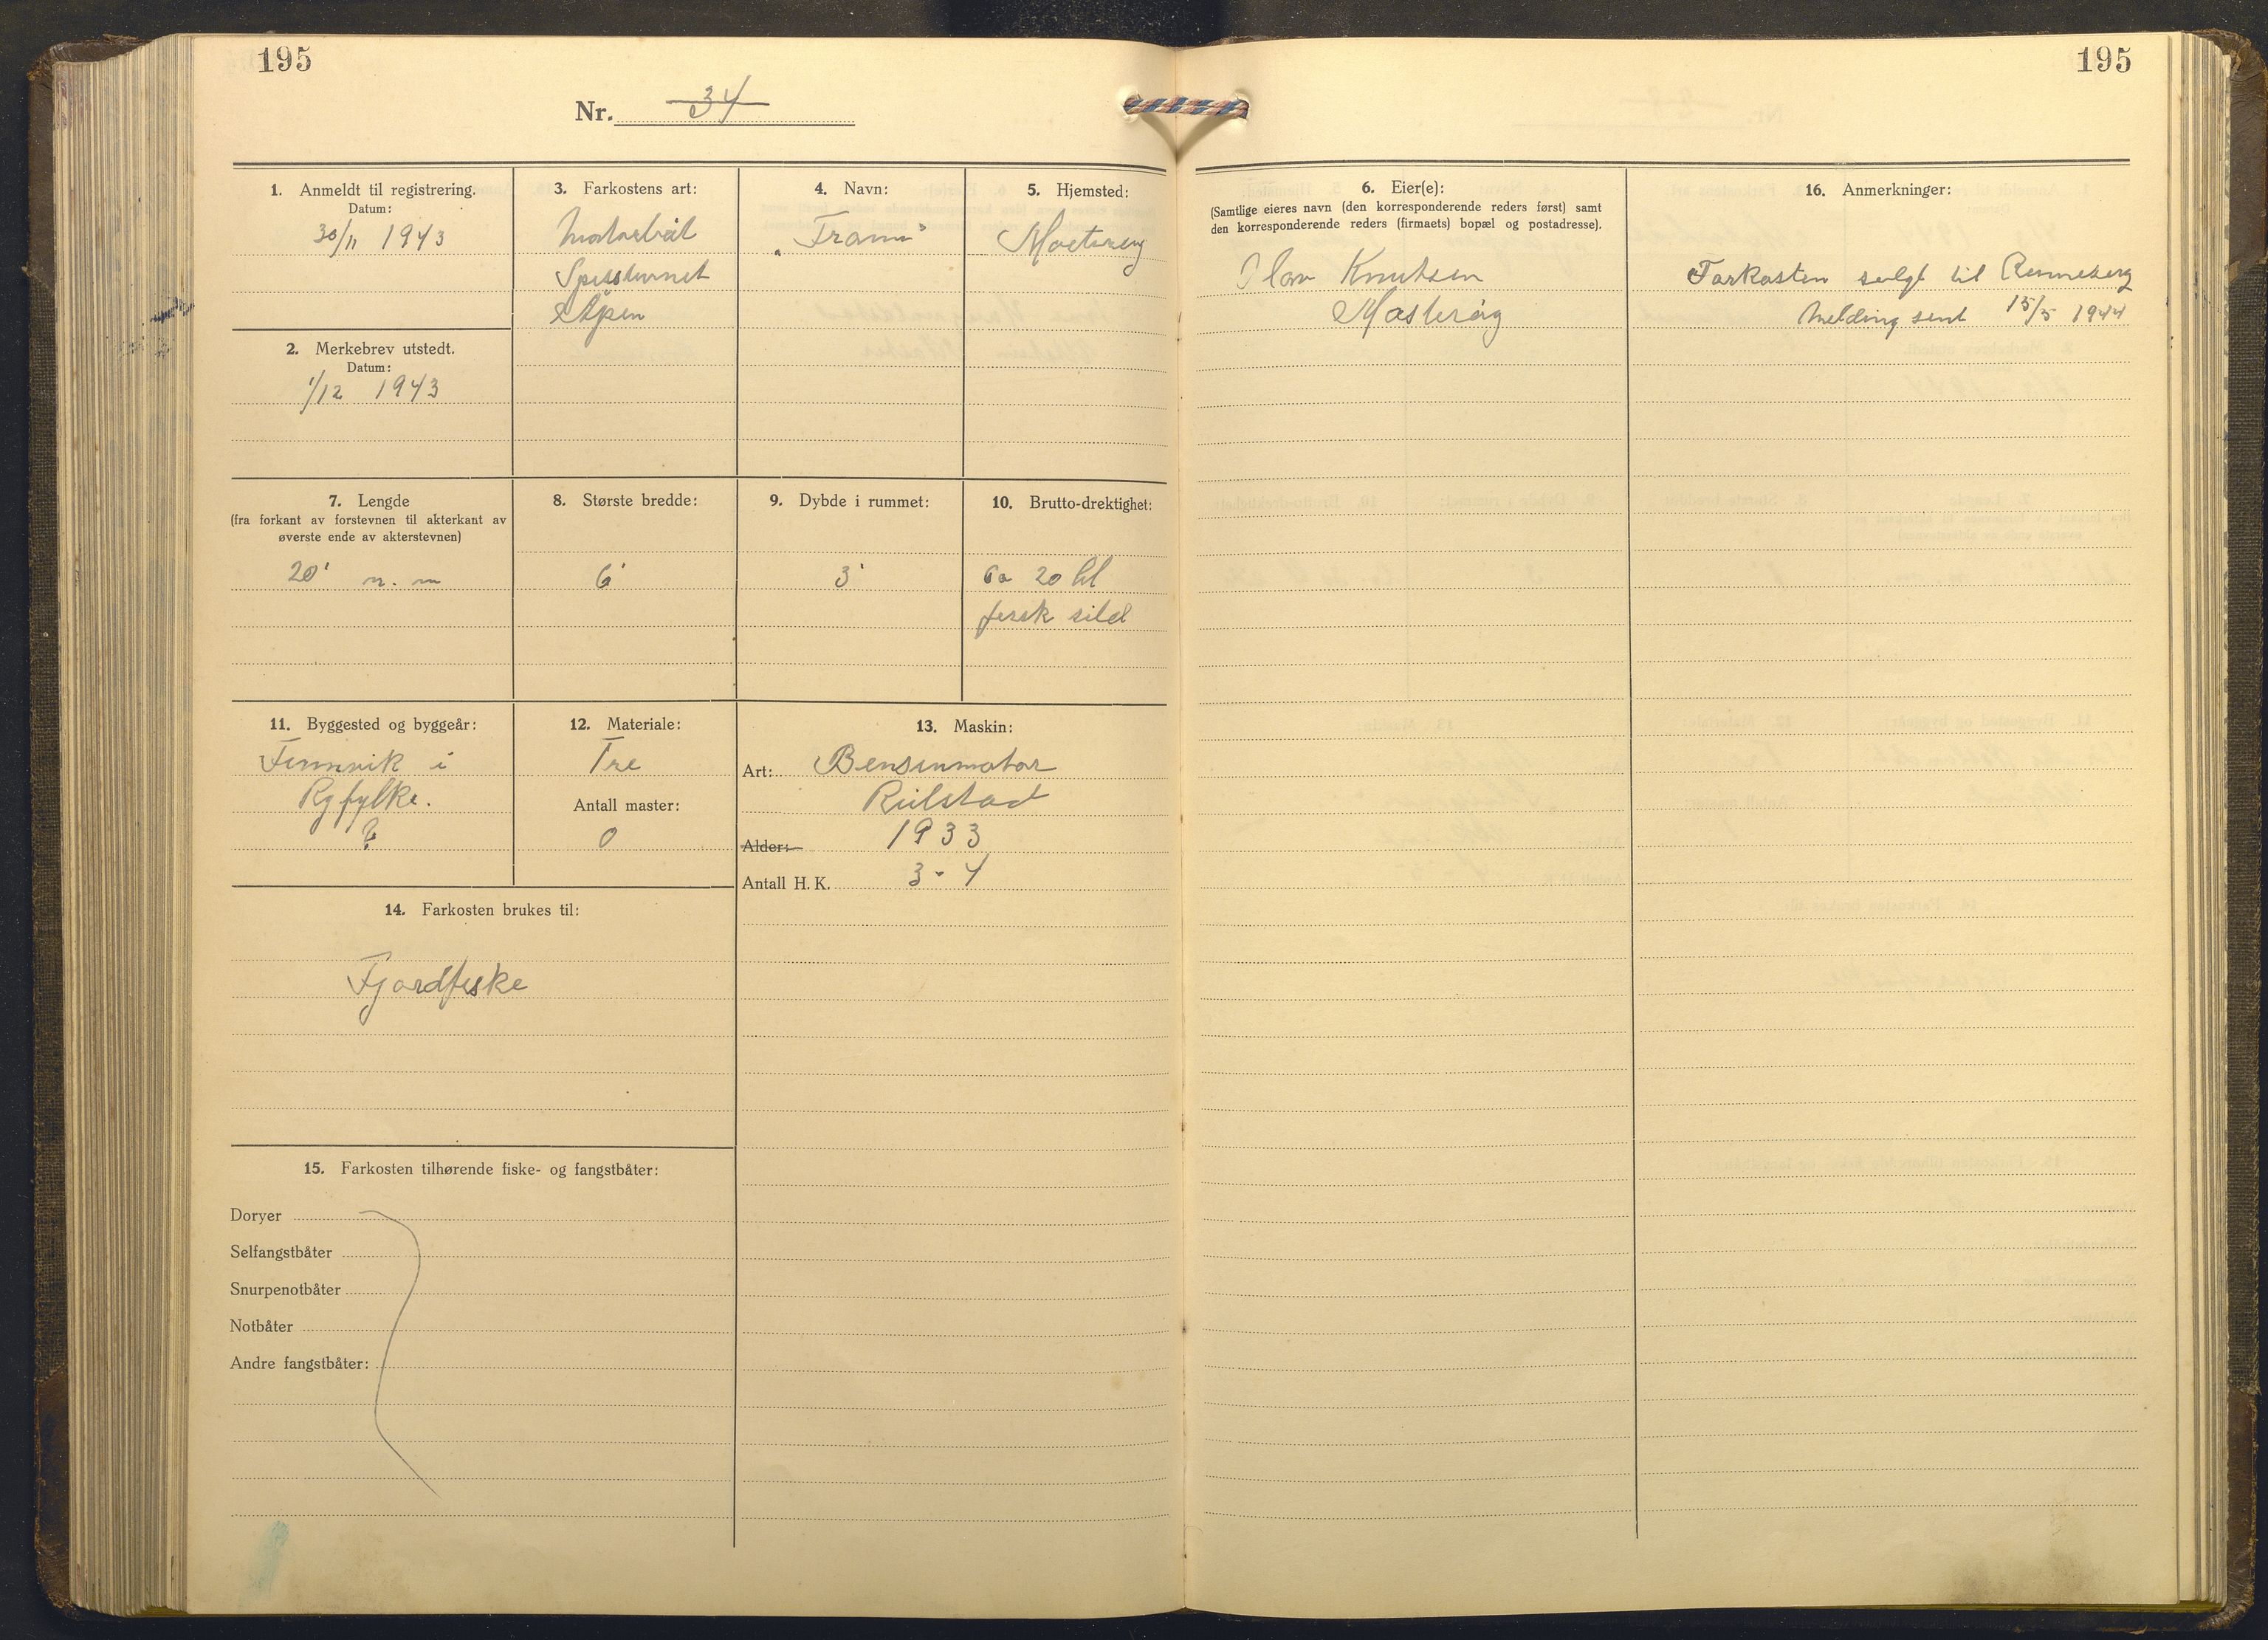 195
195
Nr. 34
1. Anmeldt til registrering.
Datum:
30/11 1943
2. Merkebrev utstedt.
Datum:
1/12 1943
3. Farkostens art:
Motorbåt
Spissbunnet
Åpen
4. Navn:
„Fram“
5. Hjemsted:
6. Eier(e):
(Samtlige eieres navn (den korresponderende reders først) samt
den korresponderende reders (firmaets) bopæl og postadresse).
Olav Knutsen
Mosterøy
16. Anmerkninger:
Farkosten solgt til Renneberg
Melding sent 15/5 1944
7. Lengde
(fra forkant av forstevnen til akterkant av
øverste ende av akterstevnen)
20' n. m
8. Største bredde:
6'
9. Dybde i rummet:
3'
10. Brutto-drektighet:
Ca 20 hl
fersk sild
11. Byggested og byggeår:
Finnvik i
Ryfylke.
?
12. Materiale:
Tre
Antall master:
0
13. Maskin:
Art: Bensinmotor
Alder: 1933
Antall H. K. 3-4
14. Farkosten brukes til:
Fjordfiske
15. Farkosten tilhørende fiske- og fangstbåter:
Doryer
Selfangstbåter
Snurpenotbåter
Notbåter
Andre fangstbåter: